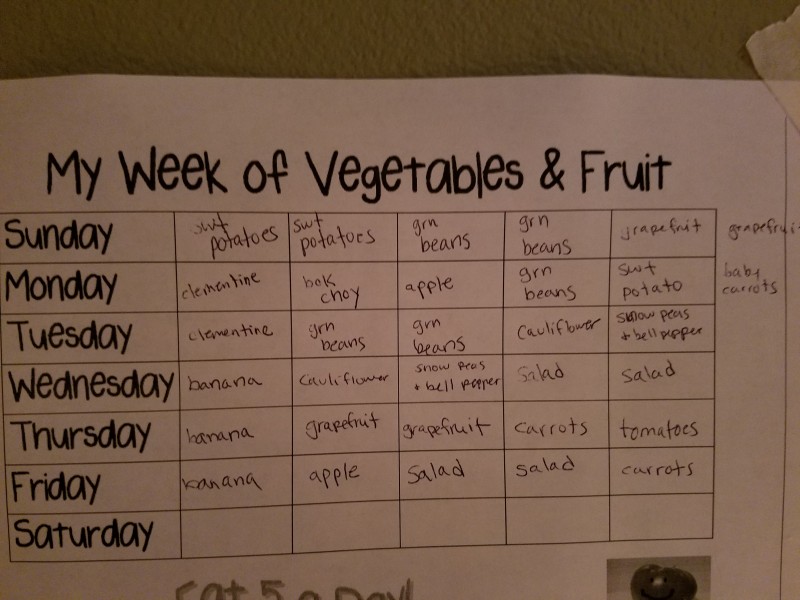 My Week of Vegetables & Fruit
Sunday swt potatoes swt potatoes grn beans grn beans grapefruit grapefruit
Monday clementine bok choy apple grn beans swt potato baby carrots
Tuesday clementine grn beans grn beans Cauliflower snow peas + bell pepper
Wednesday banana Cauliflower snow peas + bell pepper Salad salad
Thursday banana grapefruit grapefruit carrots tomatoes
Friday banana apple Salad salad carrots
Saturday
Eat 5 a Day!